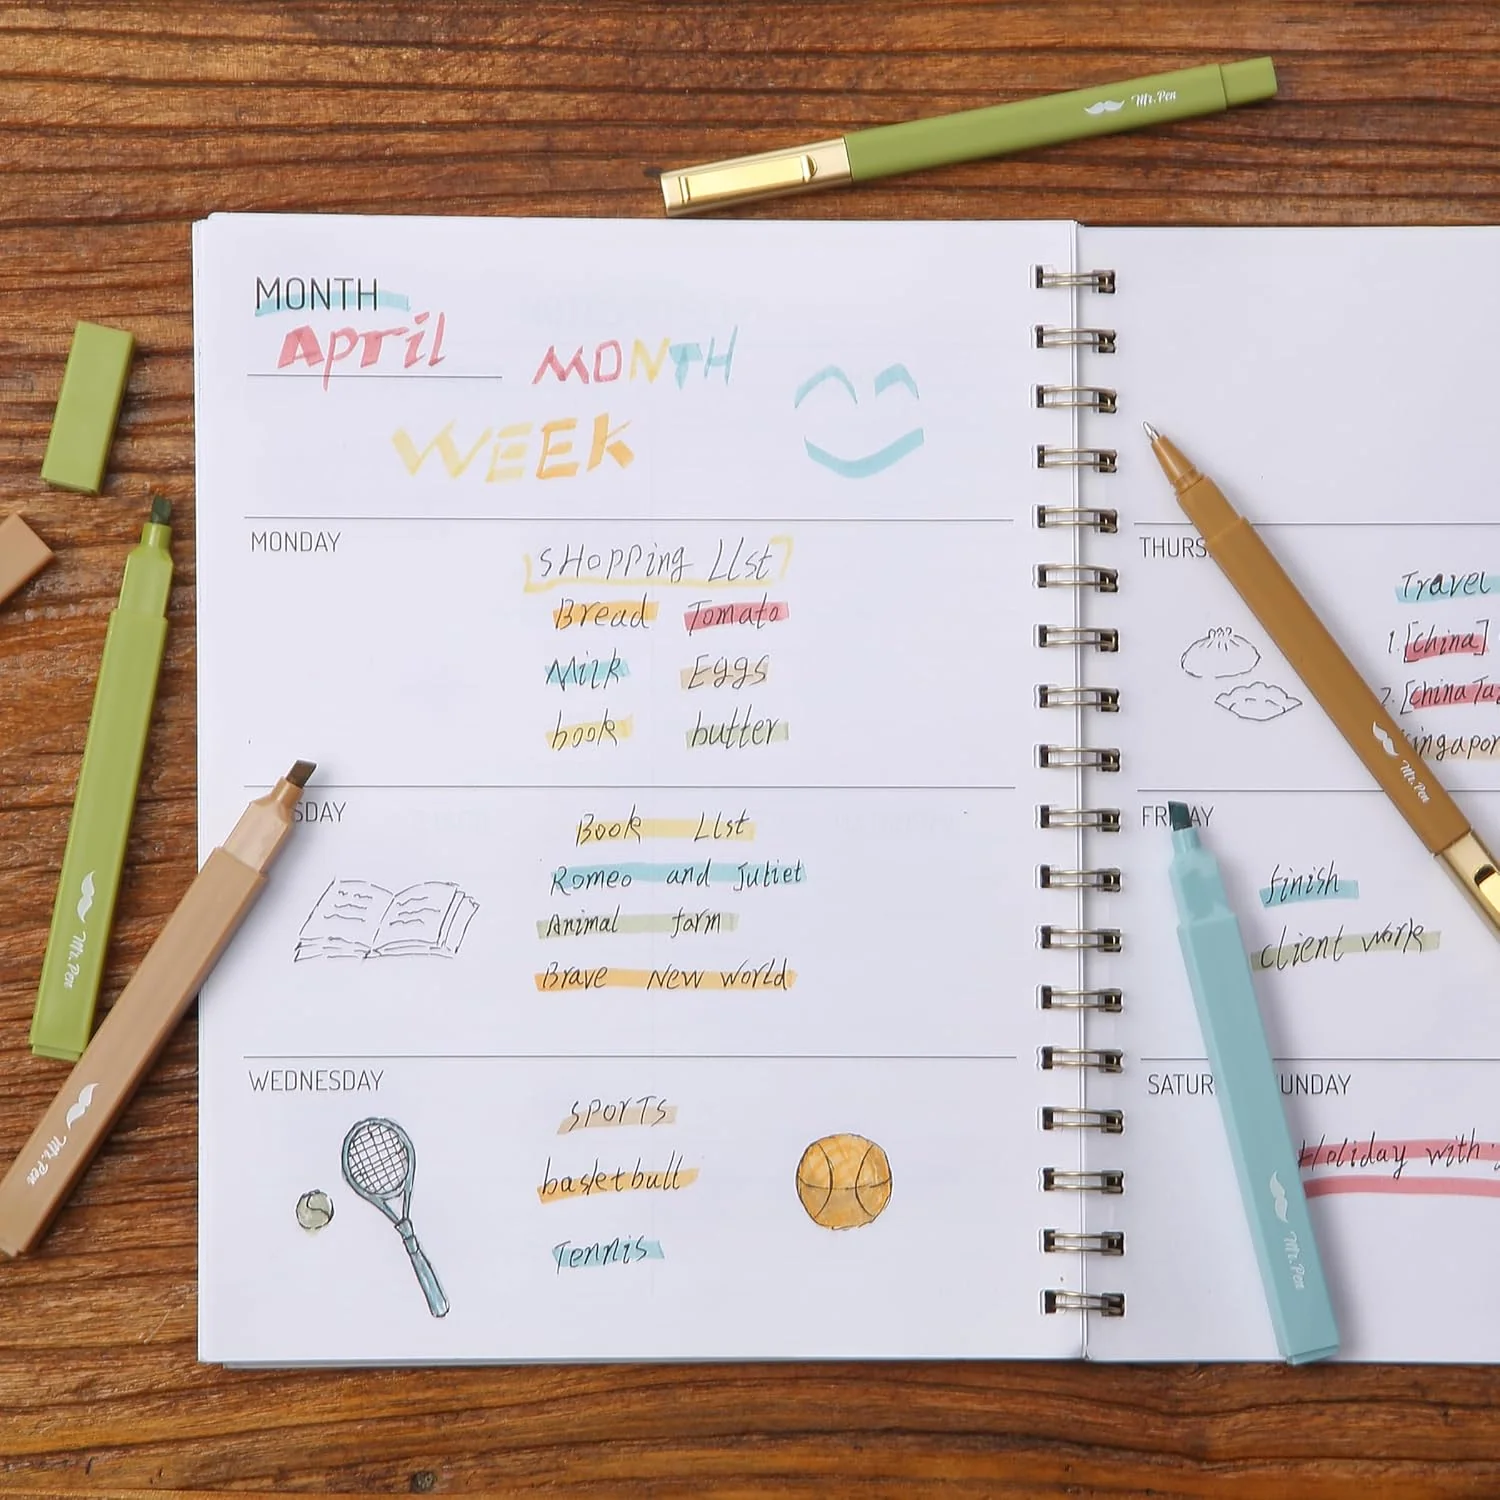 Mr. Pen
MONTH
April
MONTH
WEEK
MONDAY
SHOPPing LIst
Bread Tomato
Milk Eggs
book butter
SDAY
Book LIst
Romeo and Juliet
Animal farm
Brave New world
WEDNESDAY
SPORTS
basketball
Tennis
THURS
Travel
1. [China]
2. [China
FRIDAY
finish
client work
SATUR UNDAY
Holiday with
Mr. Pen
Mr. Pen
Mr. Pen
Mr. Pen